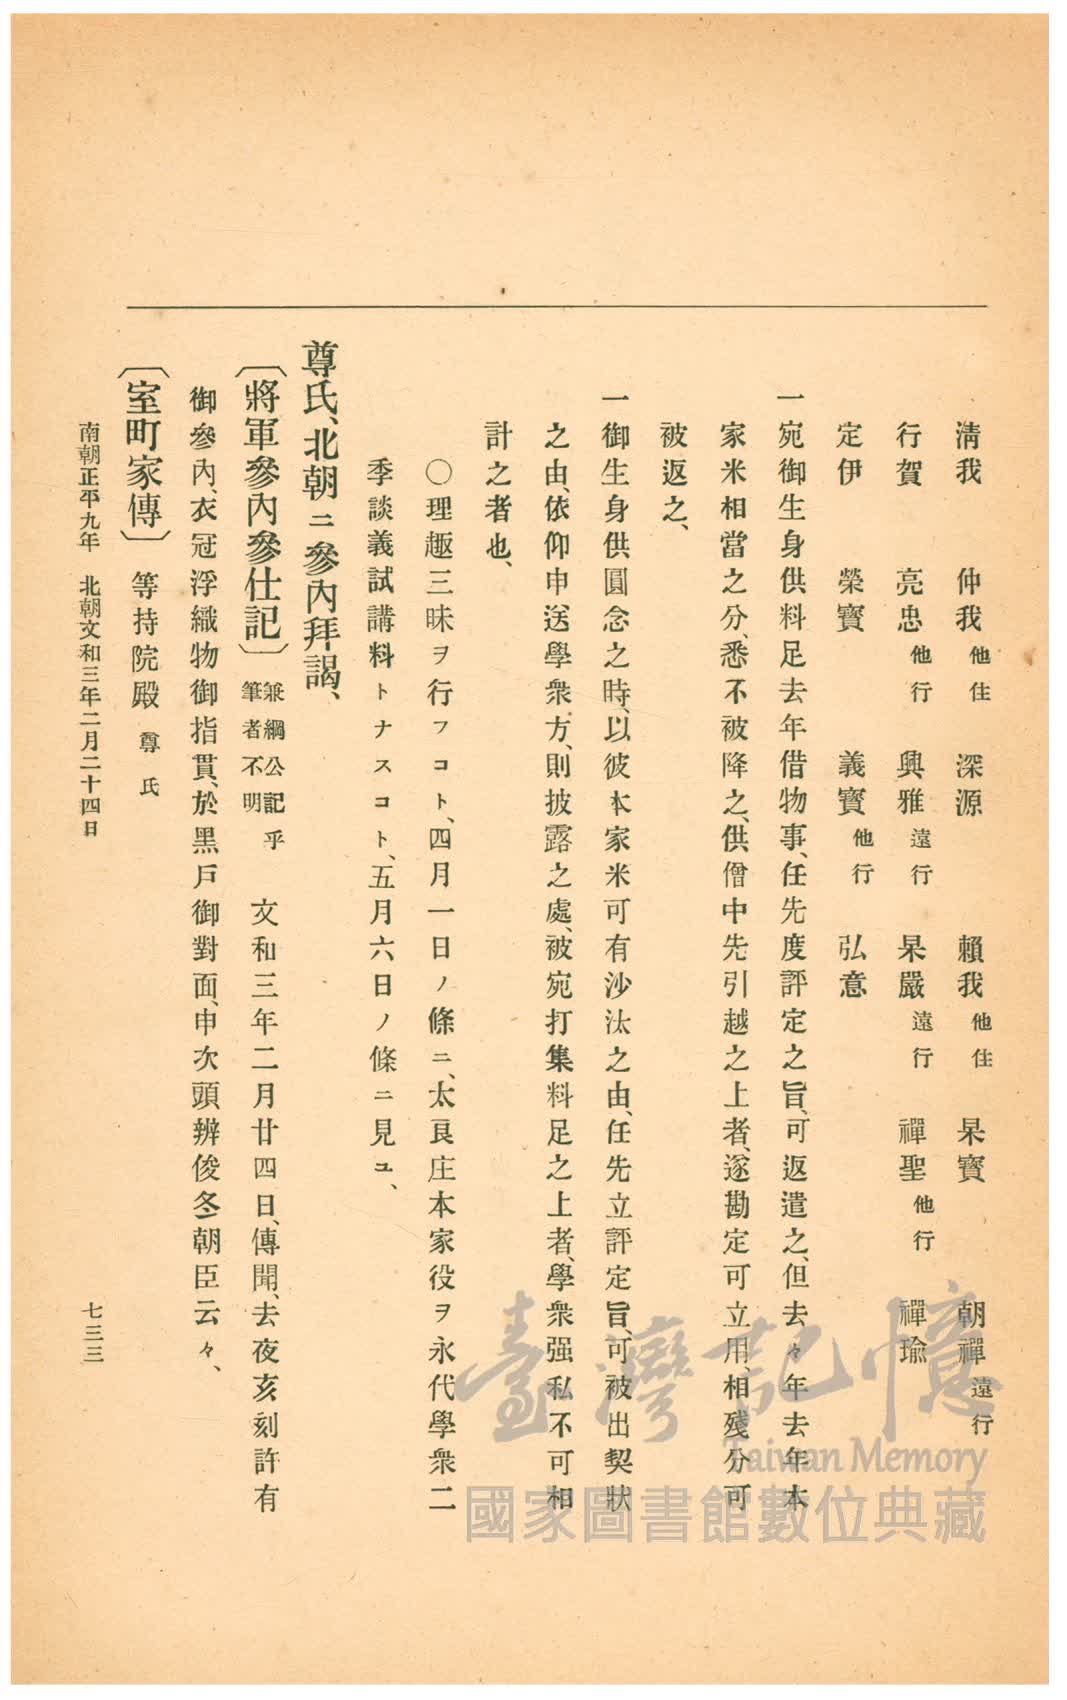 淸我　仲我他住　深源　賴我他住　杲寶　朝禪遠行
行賀　亮忠他行　興雅遠行　杲嚴遠行　禪聖他行　禪瑜
定伊　榮寶　義寶他行　弘意
一宛御生身供料足去年借物事、任先度評定之旨、可返遣之、但去々年去年本
家米相當之分、悉不被降之、供僧中先引越之上者、遂勘定可立用、相殘分可
被返之、
一御生身供圓念之時、以彼本家米可有沙汰之由、任先立評定旨、可被出契狀
之由、依仰申送學衆方、則披露之處、被宛打集料足之上者、學衆强私不可相
計之者也、
〇理趣三昧ヲ行フコト、四月一日ノ條ニ、太良庄本家役ヲ永代學衆二
季談義試講料トナスコト、五月六日ノ條ニ見ユ、
尊氏、北朝ニ參內拜謁、
〔將軍參內參仕記〕兼綱公記乎筆者不明　文和三年二月廿四日、傳聞、去夜亥刻許有
御參內、衣冠浮織物御指貫、於黑戶御對面、申次頭辨俊冬朝臣云々、
〔室町家傳〕等持院殿尊氏
南朝正平九年　北朝文和三年二月二十四日
七三三
臺灣記憶
Taiwan Memory
國家圖書館數位典藏